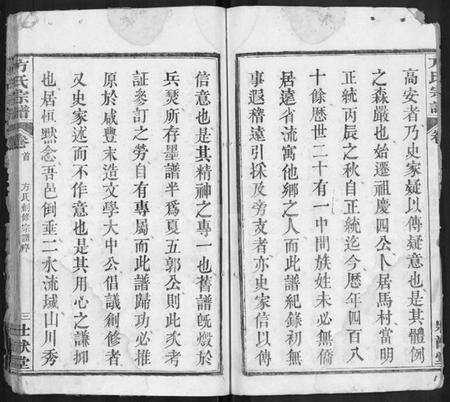 方氏宗譜
卷
高安者乃史家疑以傳疑意也是其體例
之森嚴也始遷祖慶四公卜居馬村當明
正統丙辰之秋自正統迄今歷年四百八
十餘歷世二十有一中間族姓未必無僑
居遠省流寓他鄉之人而此譜紀錄初無
事遐稽遠引採及旁支者亦史家信以傳
信意也是其精神之專一也舊譜旣燬於
兵燹所存墨譜半爲夏五郭公則此次考
証參訂之勞自有專屬而此譜歸功必推
原於咸豐末造文學大中公倡議創修者
又史家述而不作意也是其用心之謙抑
也居恒默念吾邑倒垂二水流域山川秀
方氏宗譜
卷首
方氏創修宗譜序
三
世猷堂